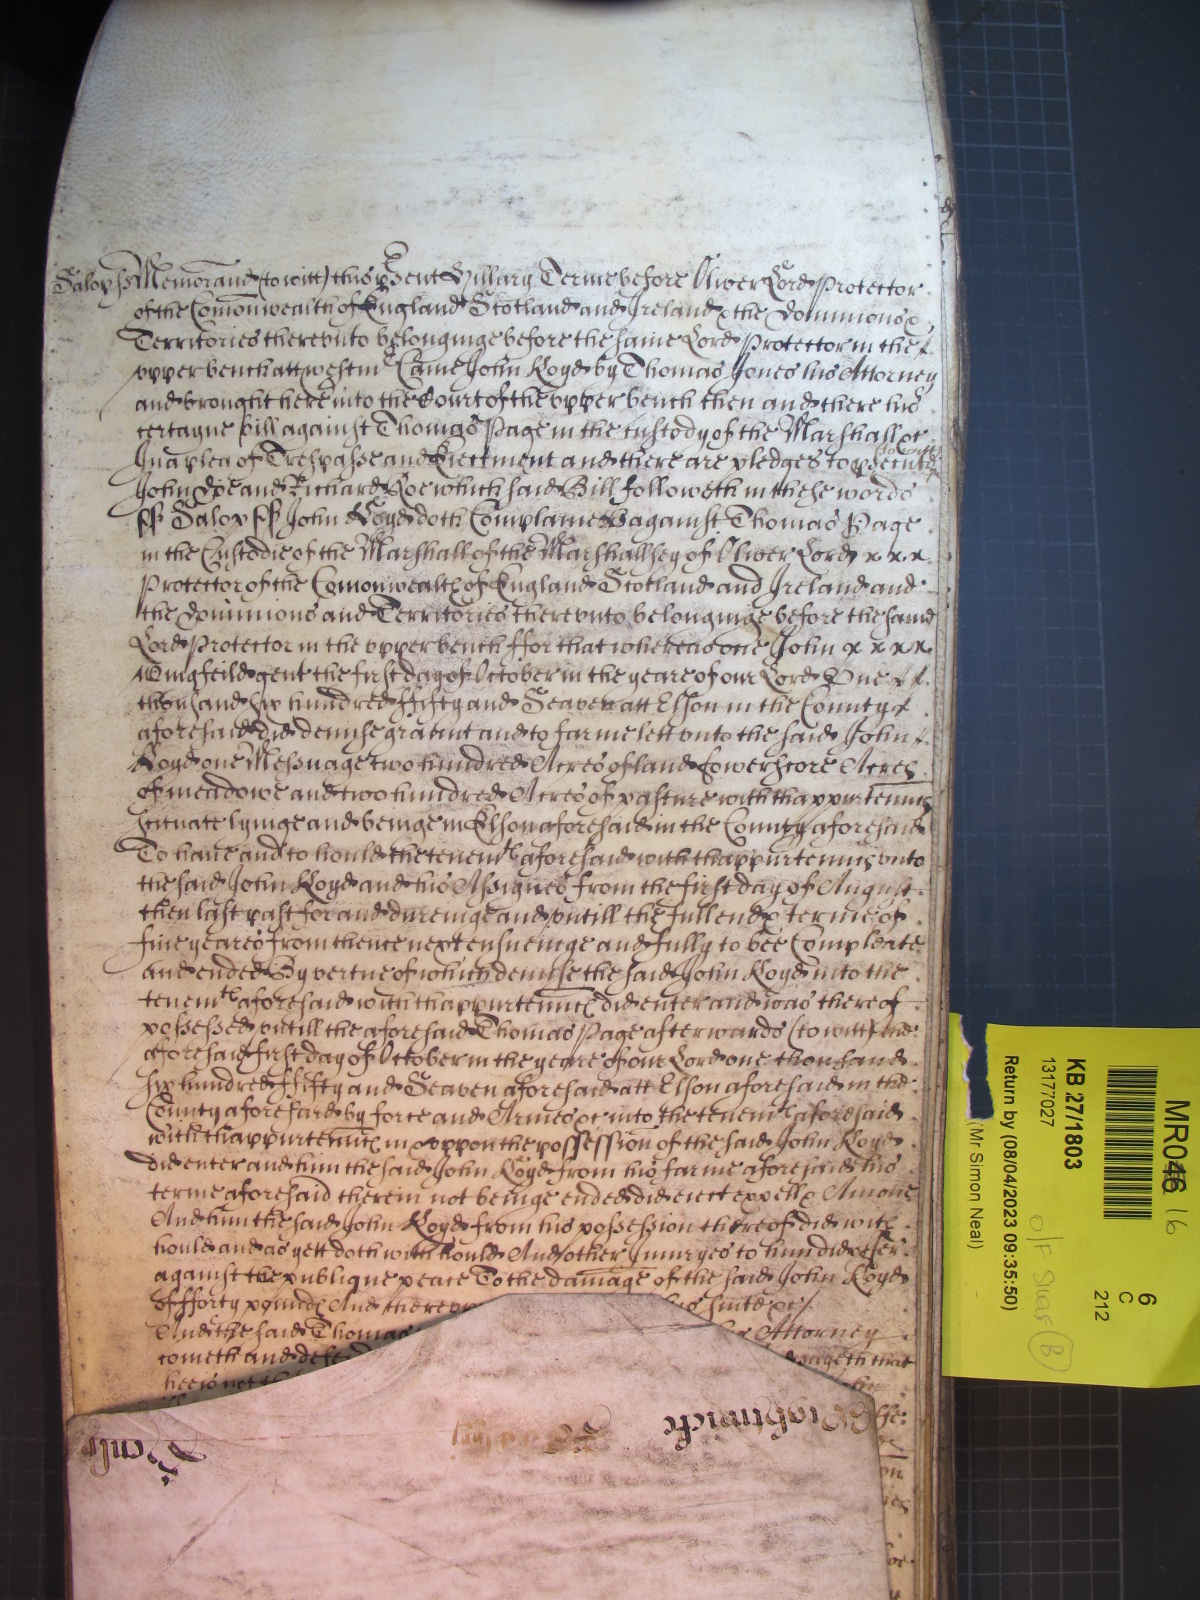 Salop ss Memorand (to witt) this psent Hillary Terme before Oliver Lord Protector
of the Comonwealth of England Scotland and Ireland & the dominions &
Territories therevnto belonginge before the same Lord Protector in the
vpper bench att westm Came John Royd by Thomas Jones his Attorney
and brought here into the Court of the vpper bench then and there his
certayne bill against Thomas Page in the custody of the Marshall &c
In a plea of Trespasse and Eiectment and there are pledges to psecute (to witt)
John Doe and Richard Roe which said Bill followeth in these words
ss Salop ss John Royd doth Complaine against Thomas Page
in the Custodie of the Marshall of the Marshallsey of Oliver Lord x x x
Protector of the Comonwealth of England Scotland and Ireland and
the dominions and Territories therevnto belonginge before the said
Lord Protector in the vpper bench ffor that whereas one John x x x x
Wingfeild gent the first day of October in the yeare of our Lord One
thousand six hundred ffifty and Seaven att Elson in the County
aforesaid did demise graunt and to farme lett vnto the said John
Royd one Messuage two hundred Acres of land fowerscore Acres
of meadowe and two hundred Acres of pasture with thappurtennts
scituate lyinge and beinge in Elson aforesaid in the County aforesaid
To haue and to hould the tenemts aforesaid with thappurtennts vnto
the said John Royd and his Assignes from the first day of August
then last past for and dureinge and vntill the full end & terme of
fiue yeares from thence next ensueinge and fully to bee Compleate
and ended By vertue of which demise the said John Royd into the
tenemts aforesaid with thappurtennts did enter and was thereof
possessed vntill the aforesaid Thomas Page afterwards (to witt) the
aforesaid first day of October in the yeare of our Lord one thousand
six hundred ffifty and Seaven aforesaid att Elson aforesaid in the
County aforesaid by force and Armes &c into the tenemts aforesaid
with thappurtennts in & vppon the possession of the said John Royd
did enter and him the said John Royd from his farme aforesaid his
terme aforesaid therein not beinge ended did eiect expell & Amoue
And him the said John Royd from his possession thereof did with
hould and as yett doth with hould And other Iniuryes to him did &c
against the publique peace To the damage of the said John Royd
of fforty pounds And his suite &c
And the said Thomas Attorney
cometh and that
hee is not
MR046 16
6
C
212
KB 27/1803
13177027
Return by (08/04/2023 09:35:50)
(Mr Simon Neal)
O/F Shar B